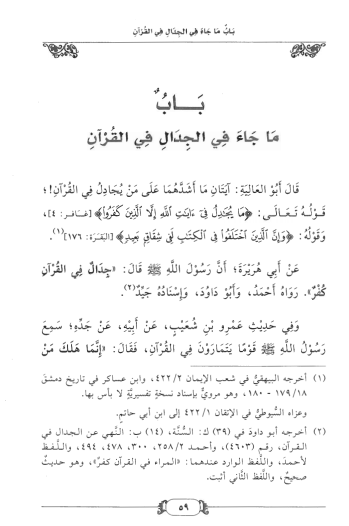 بَابُ مَا جَاءَ فِي الجِدَالِ فِي القُرْآنِ
بَــابٌ
مَا جَاءَ فِي الْجِدَالِ فِي الْقُرْآنِ
قَالَ أَبُو العَالِيَةِ: آيَتَانِ مَا أَشَدَّهُمَا عَلَى مَنْ يُجَادِلُ فِي القُرْآنِ!؛
قَـوْلُـهُ تَـعَـالَـى: ﴿مَا يُجَٰدِلُ فِىٓ ءَايَٰتِ ٱللَّهِ إِلَّا ٱلَّذِينَ كَفَرُوا۟﴾ [غَـافِـر: ٤]،
وَقَوْلُهُ: ﴿وَإِنَّ ٱلَّذِينَ ٱخْتَلَفُوا۟ فِى ٱلْكِتَٰبِ لَفِى شِقَاقٍۭ بَعِيدٍ﴾ [البَقَرَة: ١٧٦](١).
عَنْ أَبِي هُرَيْرَةَ؛ أَنَّ رَسُولَ اللَّهِ ﷺ قَالَ: «جِدَالٌ فِي القُرْآنِ
كُفْرٌ». رَوَاهُ أَحْمَدُ، وَأَبُو دَاوُدَ، وَإِسْنَادُهُ جَيِّدٌ(٢).
وَفِي حَدِيثِ عَمْرِو بْنِ شُعَيْبٍ، عَنْ أَبِيهِ، عَنْ جَدِّهِ؛ سَمِعَ
رَسُولُ اللَّهِ ﷺ قَوْمًا يَتَمَارَوْنَ فِي القُرْآنِ، فَقَالَ: «إِنَّمَا هَلَكَ مَنْ
(١) أخرجه البيهقي في شعب الإيمان ٤٢٢/٢، وابن عساكر في تاريخ دمشق
١٧٩/١٨ - ١٨٠، وهو مرويٌّ بإسناد نسخةٍ تفسيريَّةٍ لا بأس بها.
وعزاه السُّيوطيُّ في الإتقان ٤٢٢/١ إلى ابن أبي حاتم.
(٢) أخرجه أبو داودَ في (٣٩) ك: السُّنَّة، (١٤) ب: النَّهي عن الجدال في
القرآن، رقم (٤٦٠٣)، وأحمد ٢٥٨/٢، ٣٠٠، ٤٧٨، ٤٩٤، واللَّـفظ
لأحمدَ، واللَّفظ الوارد عندهما: «المراء في القرآن كفرٌ»، وهو حديثٌ
صحيحٌ، واللَّفظ الثَّاني أثبت.
٥٩